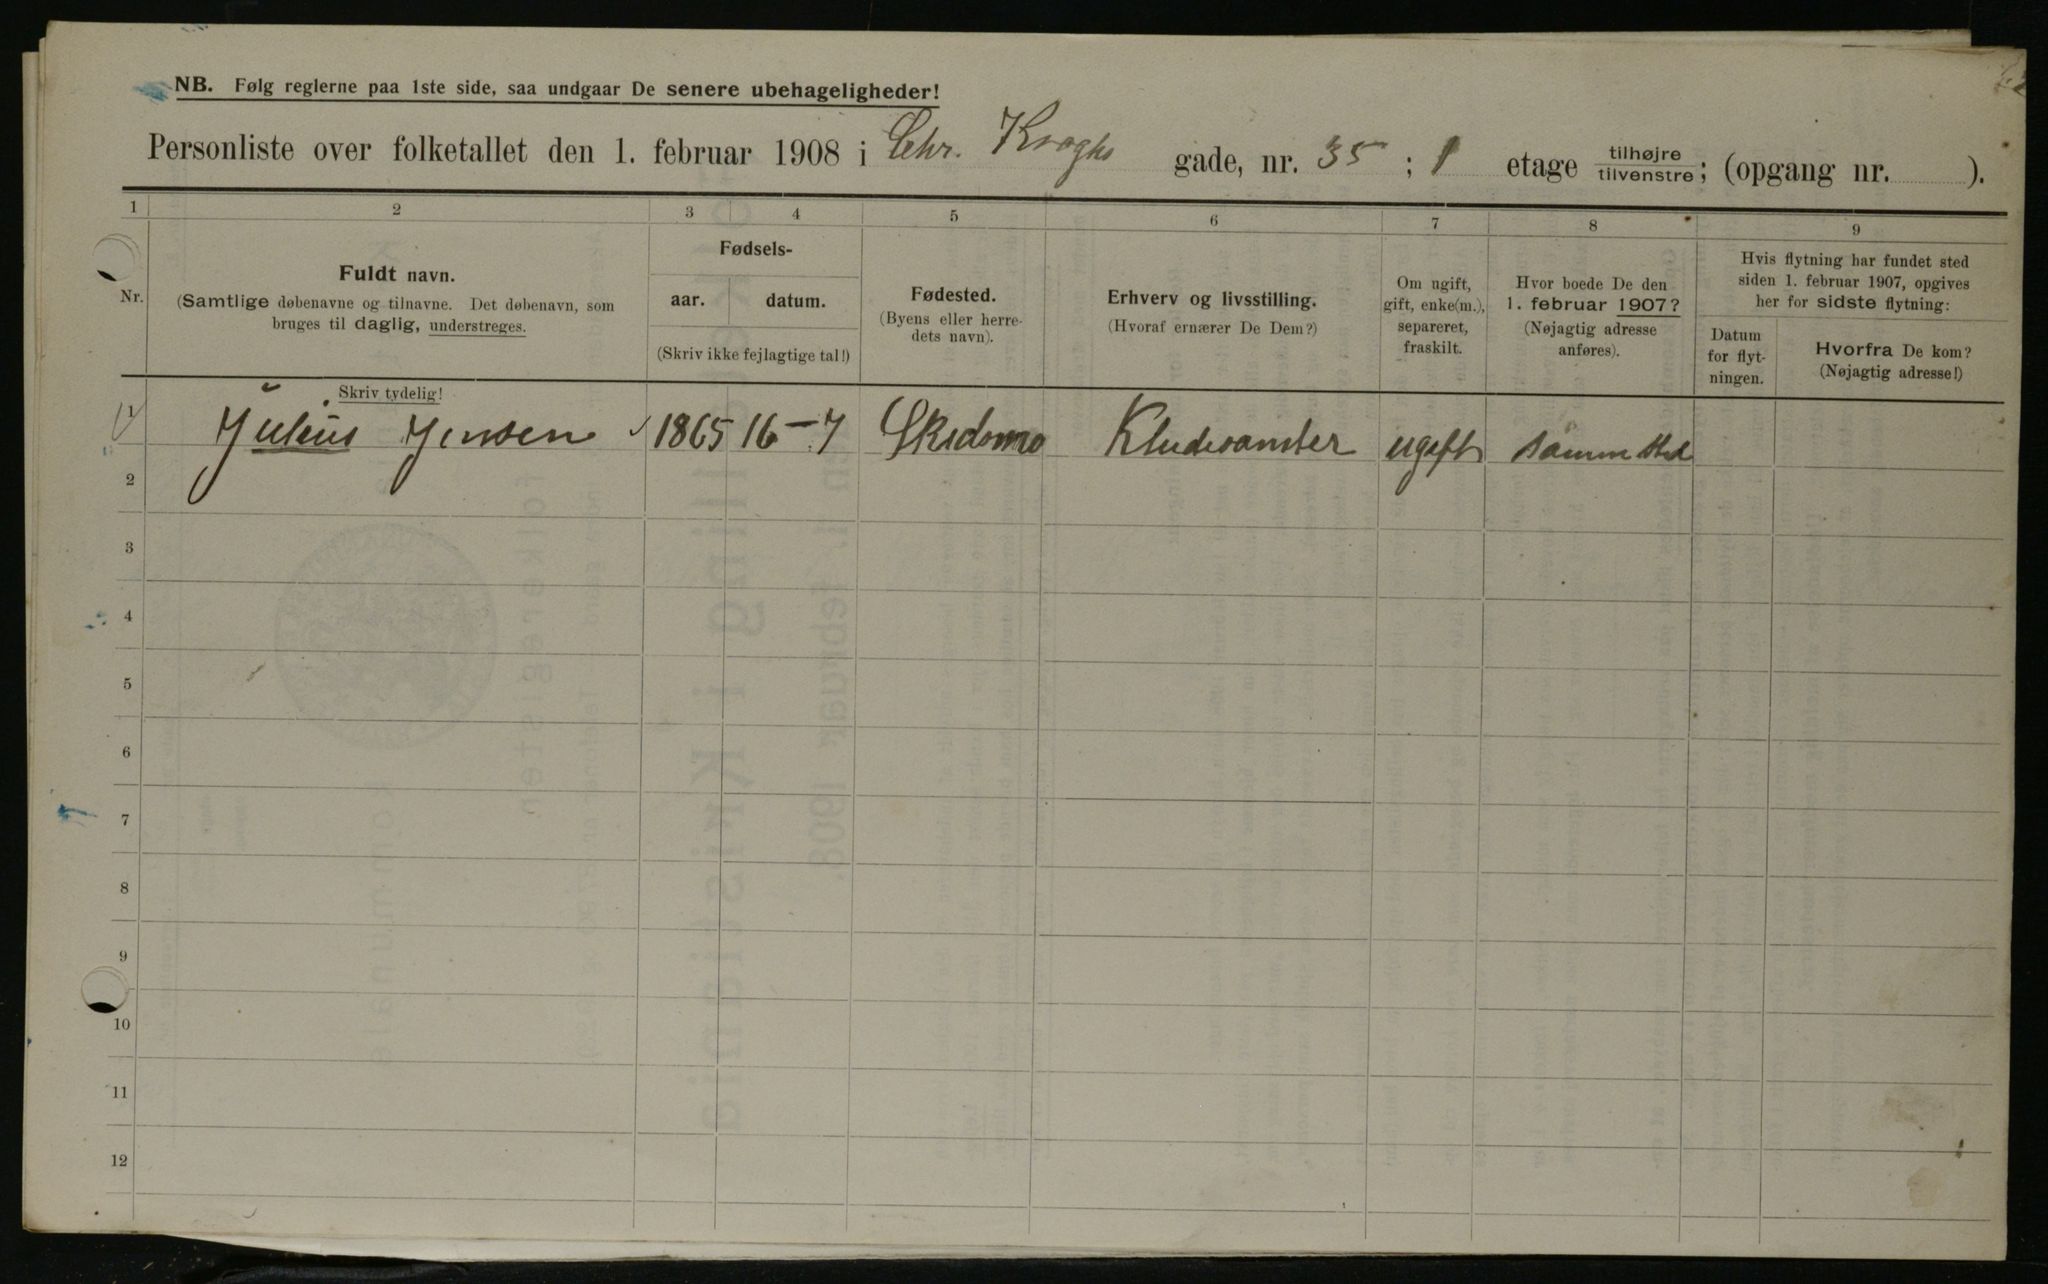 NB. Følg reglerne paa 1ste side, saa undgaar De senere ubehageligheder!
Personliste over folketallet den 1. februar 1908 i Chr. Kroghs gade, nr. 35 ; 1 etage tilhøjre/tilvenstre; (opgang nr. ).
1 2 3 4 5 6 7 8 9
Nr.
Fuldt navn.
(Samtlige døbenavne og tilnavne. Det døbenavn, som
bruges til daglig, understreges.
Skriv tydelig!
Fødsels-
aar. datum.
(Skriv ikke fejlagtige tal!)
Fødested.
(Byens eller herre-
dets navn).
Erhverv og livsstilling.
(Hvoraf ernærer De Dem?)
Om ugift,
gift, enke(m.),
separeret,
fraskilt.
Hvor boede De den
1. februar 1907?
(Nøjagtig adresse
anføres).
Hvis flytning har fundet sted
siden 1. februar 1907, opgives
her for sidste flytning:
Datum
for flyt-
ningen.
Hvorfra De kom?
(Nøjagtig adresse!)
1 Julius Jensen 1865 16-7 Skedsmo Kludesamler ugift samme sted
2
3
4
5
6
7
8
9
10
11
12